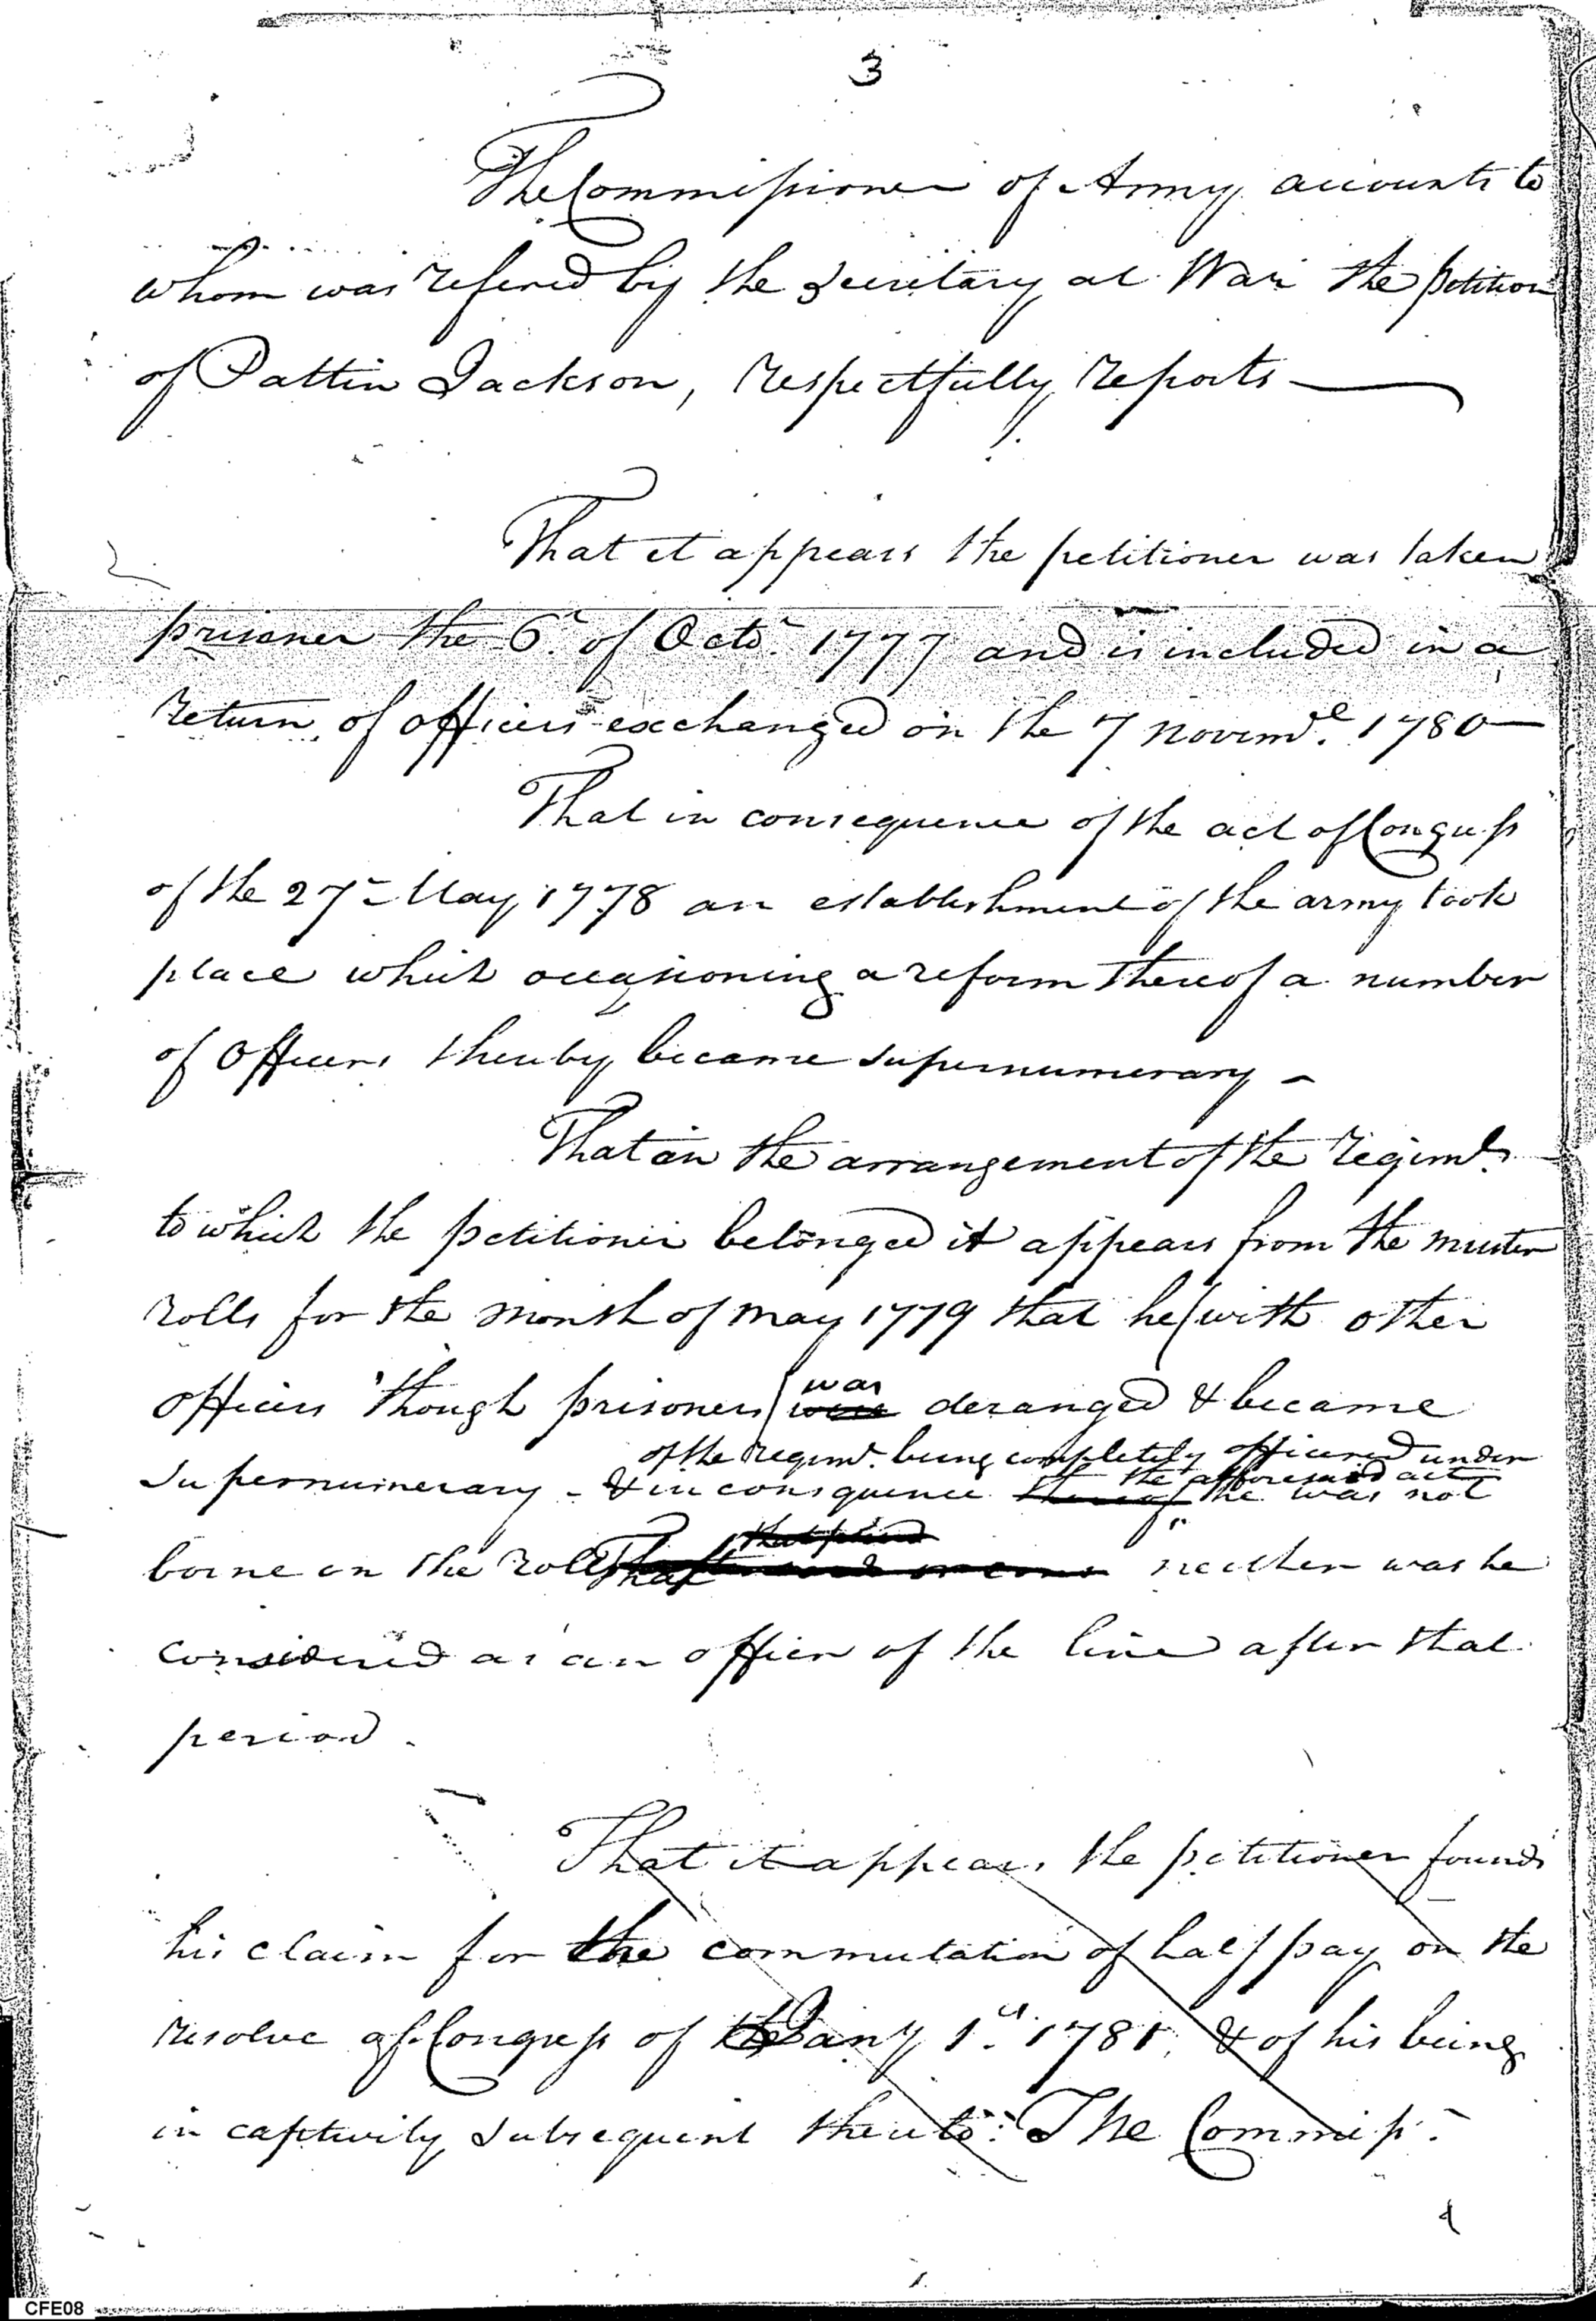 3
The Commissioner of Army accounts to
whom was refered by the Secretary at War the petition
of Pattin Jackson, respectfully reports
That it appears the petitioner was taken
prisoner the 6th of Octo. 1777 and is included in a
return of officers exchanged on the 7 Novemr. 1780
That in consequence of the act of Congress
of the 27th May 1778 an establishment of the army took
place which occasioning a reform thereof a number
of Officers thereby became supernumerary
That in the arrangement of the regimt.
to which the petitioner belonged it appears from the muster
rolls for the month of May 1779 that he (with other
officers though prisoners) was
were deranged & became
of the regimt. being completely officered under
the afforesaid act
supernumerary - & in consequence thereof he was not
that period
borne on the rolls neither was he
considered as an officer of the line after that
period.
That it appears the petitioner founds
his claim for the commutation of half pay on the
resolve of Congress of Jany 1st. 1781 & of his being
in captivity subsequent thereto: The Commissr.
CFE08